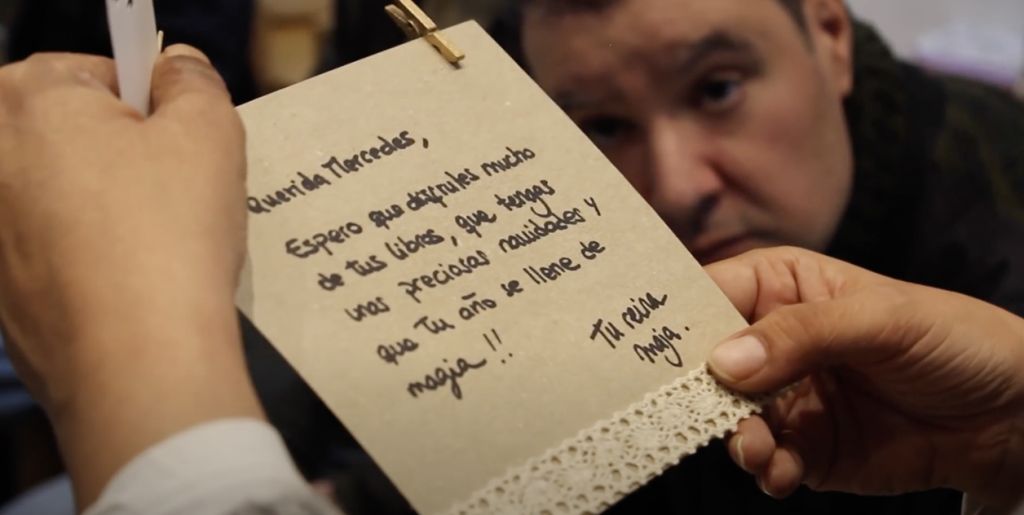 Querida Mercedes,
Espero que disfrutes mucho
de tus libros, que tengas
unas preciosas navidades y
que tu año se llene de
magia!!
Tu reina
maga.